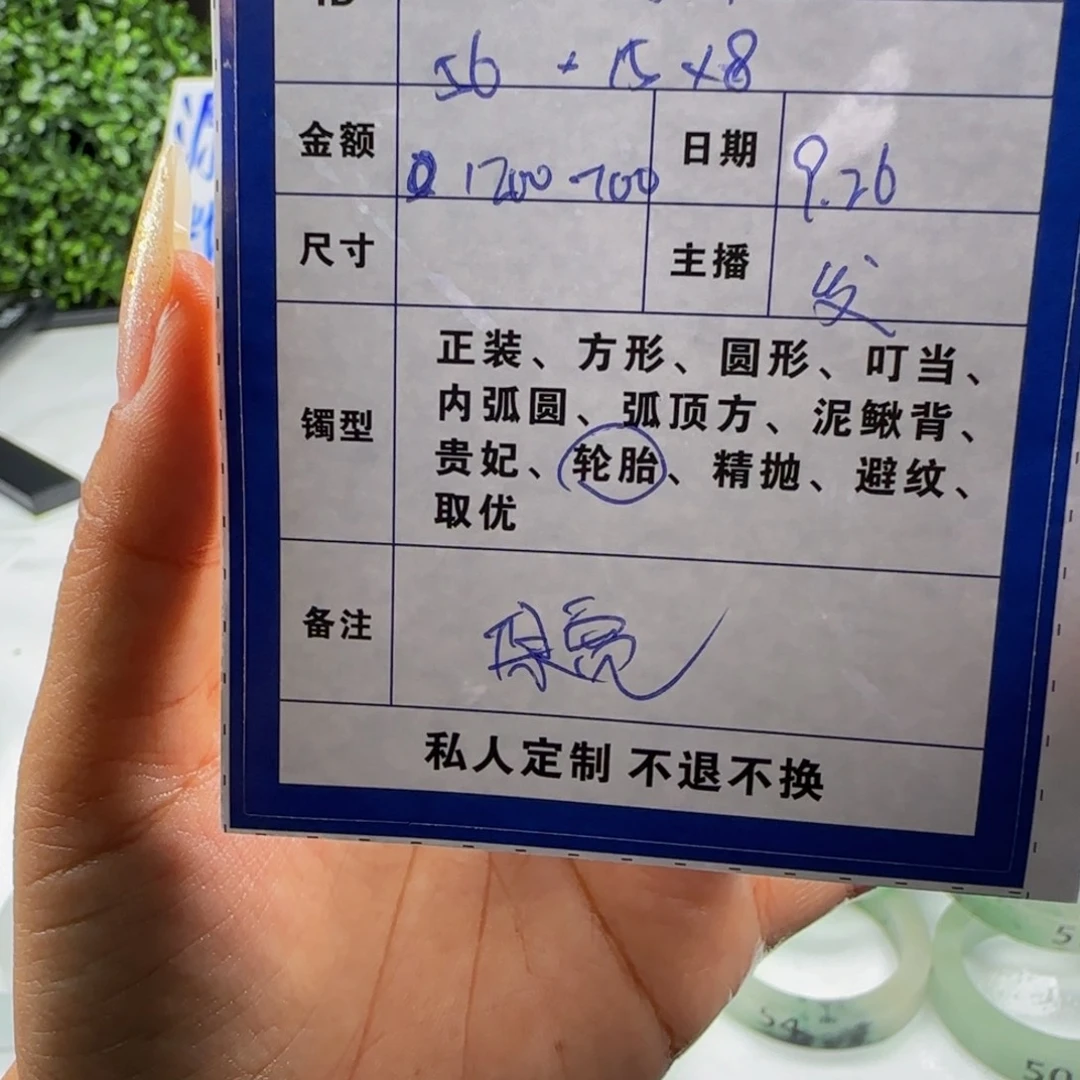 56 + 15 × 8
金额 1200-700 日期 9.26
尺寸 主播 发
镯型
正装、方形、圆形、叮当、
内弧圆、弧顶方、泥鳅背、
贵妃、轮胎、精抛、避纹、
取优
备注 保宽
私人定制 不退不换
54
5
50